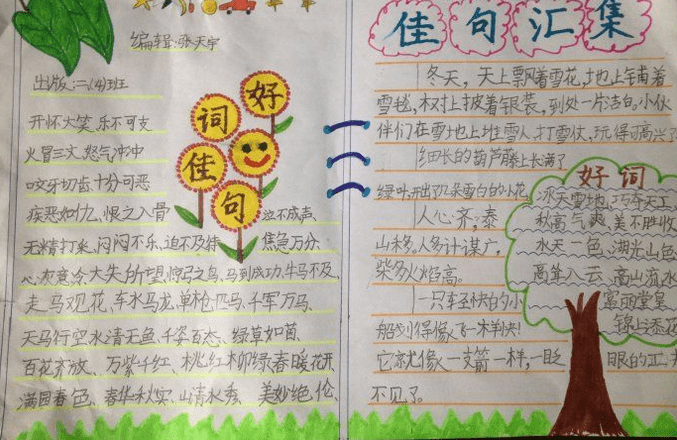 编辑:张天宇
出版:二(4)班
好
词
佳
句
开怀大笑,乐不可支
火冒三丈,怒气冲冲
咬牙切齿、十分可恶
疾恶如仇、恨之入骨
泣不成声、
无精打采、闷闷不乐、迫不及待 焦急万分、
心灰意冷、大失所望、惊弓之鸟、马到成功、牛马不及、
走马观花、车水马龙、单枪匹马、千军万马、
天马行空、水清无鱼、千姿百态、绿草如茵、
百花齐放、万紫千红、桃红柳绿、春暖花开、
满园春色、春华秋实、山清水秀、美妙绝伦、
佳句汇集
冬天,天上飘着雪花,地上铺着
雪毯,树上披着银装,到处一片洁白,小伙
伴们在雪地上堆雪人,打雪仗,玩得可高兴了
细长的葫芦藤上长满了
绿叶,开出了几朵雪白的小花
人心齐,泰
山移。人多计谋广,
柴多火焰高。
一只轻快的小
船划得像飞一样
它就像一支箭一样,一眨 眼的工夫
不见了。
好词
冰天雪地、巧夺天工
秋高气爽、美不胜收
水天一色、湖光山色
高耸入云、高山流水
富丽堂皇
锦上添花